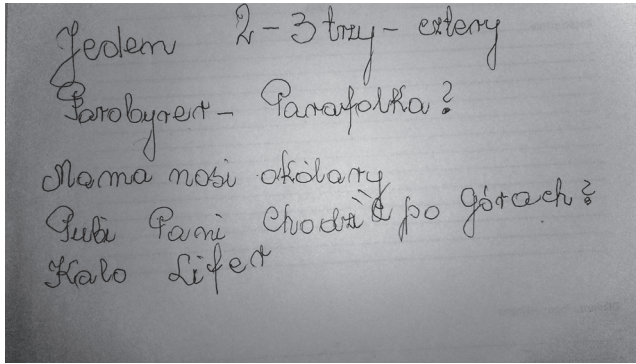 Jedem 2-3 trzy - cztery
Parobyrer - Parafolka?
Mama nosi okólary
Lubi Pani Chodzić po górach?
Kalo Lifer